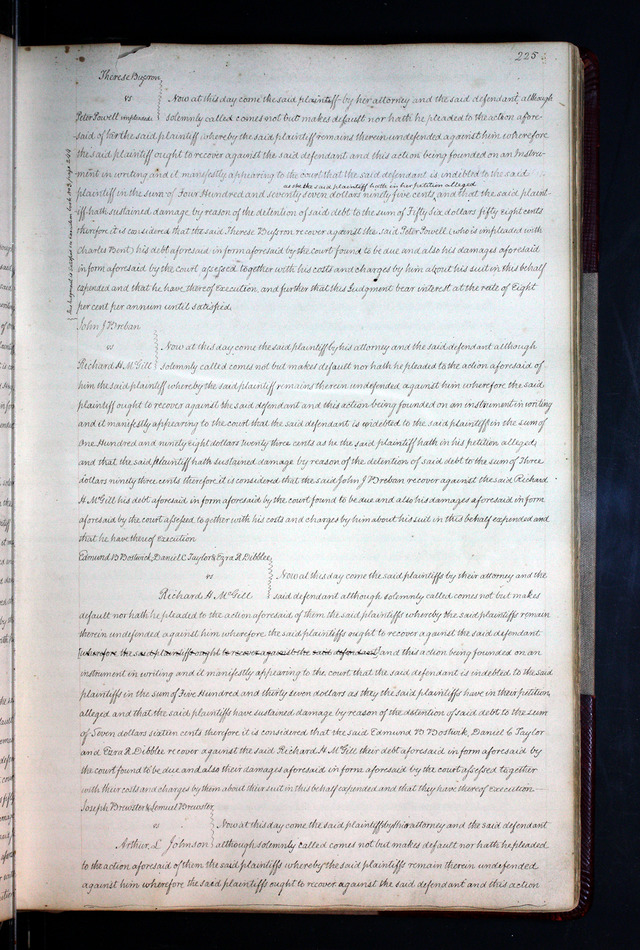 225
Therese Bussron
vs Now at this day come the said plaintiff by her attorney and the said defendant, although
Peter Powell impleaded solemnly called comes not but makes default nor hath he pleaded to the action afore-
said of her the said plaintiff whereby the said plaintiff remains therein undefended against him wherefore
the said plaintiff ought to recover against the said defendant and this action being founded on an Instru-
ment in writing and it manifestly appearing to the court that the said defendant is indebted to the said
as she the said plaintiff hath in her petition alleged
plaintiff in the sum of Four Hundred and seventy seven dollars ninety five cents and that the said plaint-
iff hath sustained damage by reason of the detention of said debt to the sum of Fifty six dollars fifty eight cents
therefore it is considered that the said Therese Bussron recover against the said Peter Powell (who is impleaded with
Charles Bent) his debt aforesaid in form aforesaid by the court found to be due and also his damages aforesaid
in form aforesaid by the court assessed together with his costs and charges by him about his suit in this behalf
expended and that he have thereof execution, and further that this Judgment bear interest at the rate of Eight
per cent per annum until satisfied.
John J Breban
vs Now at this day come the said plaintiff by his attorney and the said defendant although
Richard H. McGill solemnly called comes not but makes default nor hath he pleaded to the action aforesaid of
him the said plaintiff whereby the said plaintiff remains therein undefended against him wherefore the said
plaintiff ought to recover against the said defendant and this action being founded on an instrument in writing
and it manifestly appearing to the court that the said defendant is indebted to the said plaintiff in the sum of
One Hundred and ninety eight dollars twenty three cents as he the said plaintiff hath in his petition alleged
and that the said plaintiff hath sustained damage by reason of the detention of said debt to the sum of Three
dollars ninety three cents therefore it is considered that the said John J Breban recover against the said Richard
H. McGill his debt aforesaid in form aforesaid by the court found to be due and also his damages aforesaid in form
aforesaid by the court assessed together with his costs and charges by him about his suit in this behalf expended and
that he have thereof execution
Edmund W Bostwick, Daniel C Taylor & Ezra R. Dibblee
vs Now at this day come the said plaintiffs by their attorney and the
Richard H. McGill said defendant although solemnly called comes not but makes
default nor hath he pleaded to the action aforesaid of them the said plaintiffs whereby the said plaintiffs remain
therein undefended against him wherefore the said plaintiffs ought to recover against the said defendant
(wherefore the said plaintiffs ought to recover against the said defendant) and this action being founded on an
instrument in writing and it manifestly appearing to the court that the said defendant is indebted to the said
plaintiffs in the sum of Five Hundred and thirty seven dollars as they the said plaintiffs have in their petition
alleged and that the said plaintiffs have sustained damage by reason of the detention of said debt to the sum
of Seven dollars sixteen cents therefore it is considered that the said Edmund W Bostwick, Daniel C Taylor
and Ezra R. Dibblee recover against the said Richard H. McGill their debt aforesaid in form aforesaid by
the court found to be due and also their damages aforesaid in form aforesaid by the court assessed together
with their costs and charges by them about their suit in this behalf expended and that they have thereof execution
Joseph Brewster & Lemuel Brewster
vs Now at this day come the said plaintiffs by their attorney and the said defendant
Arthur L Johnson although solemnly called comes not but makes default nor hath he pleaded
to the action aforesaid of them the said plaintiffs whereby the said plaintiffs remain therein undefended
against him wherefore the said plaintiffs ought to recover against the said defendant and this action